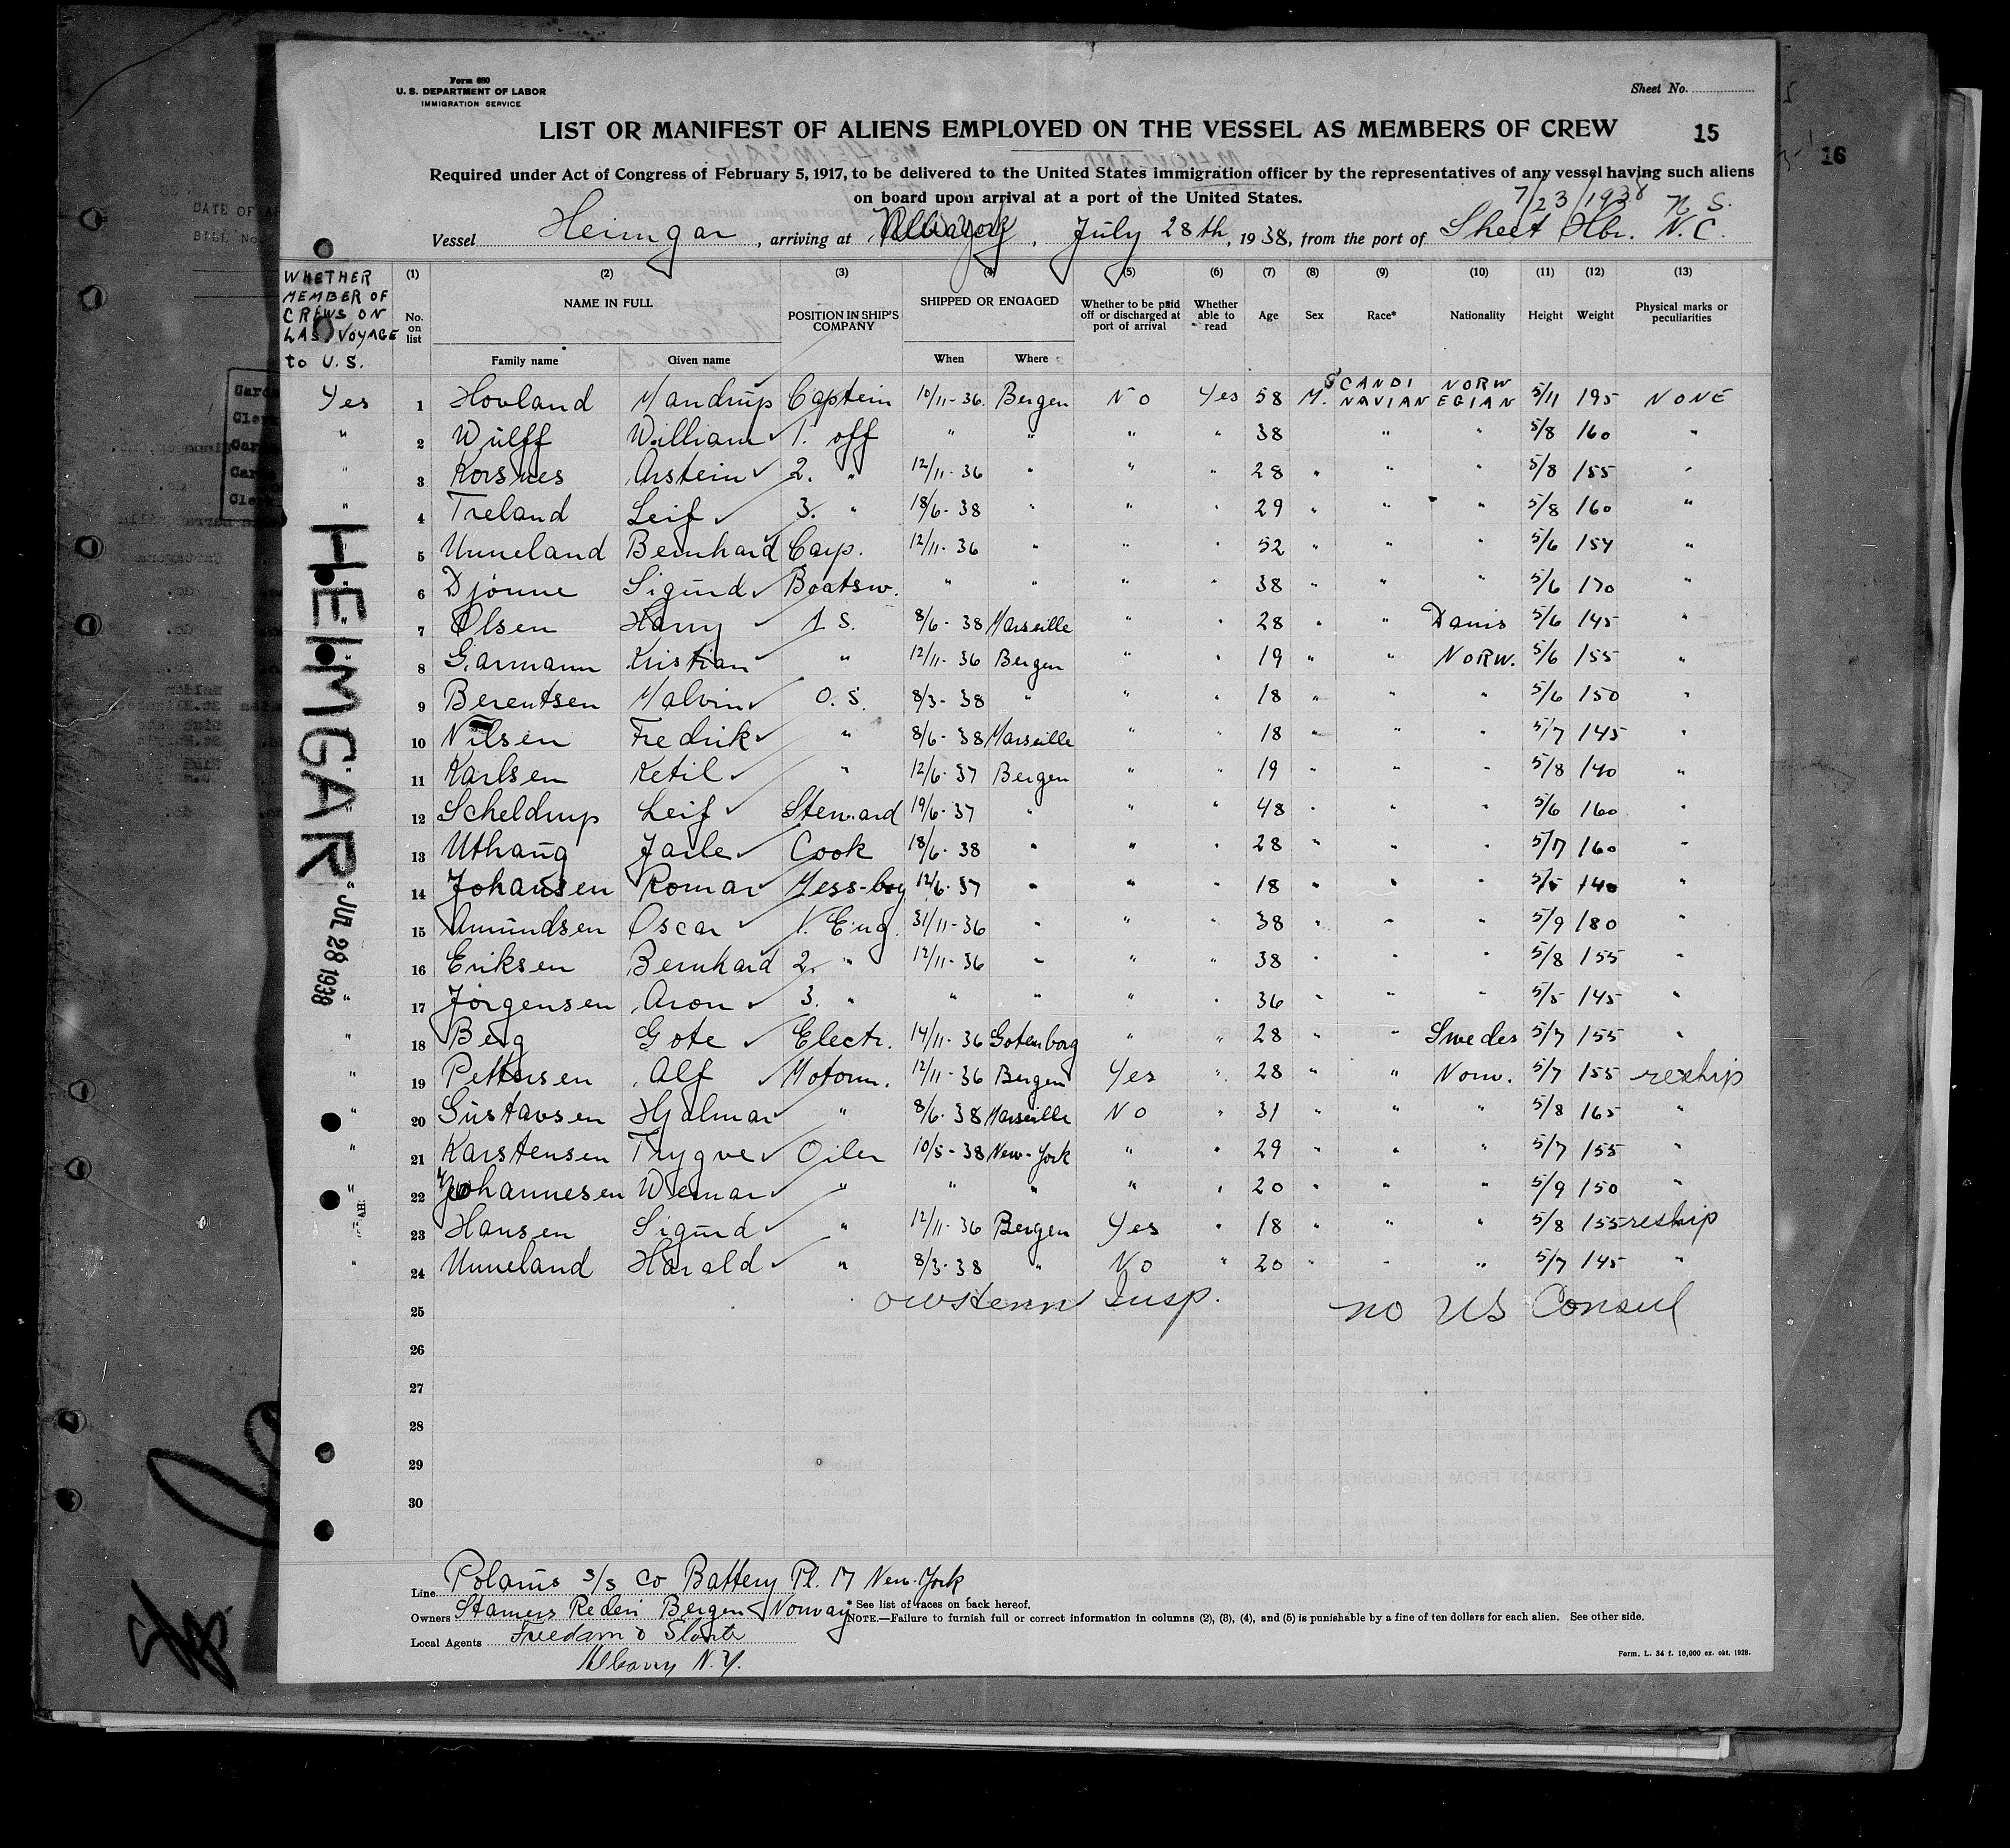 Form 680
U. S. DEPARTMENT OF LABOR
IMMIGRATION SERVICE
Sheet No.
LIST OR MANIFEST OF ALIENS EMPLOYED ON THE VESSEL AS MEMBERS OF CREW
15
16
Required under Act of Congress of February 5, 1917, to be delivered to the United States immigration officer by the representatives of any vessel having such aliens
on board upon arrival at a port of the United States.
7/23/1938 N. S.
Vessel Heimgar, arriving at, July 28th, 1938, from the port of Sheet Hbr. N.C.
WHETHER MEMBER OF CREWS ON LAST VOYAGE to U.S.
(1) (2) (3) (4) (5) (6) (7) (8) (9) (10) (11) (12) (13)
No. on list NAME IN FULL POSITION IN SHIP'S COMPANY SHIPPED OR ENGAGED Whether to be paid off or discharged at port of arrival Whether able to read Age Sex Race* Nationality Height Weight Physical marks or peculiarities
Family name Given name When Where
Yes 1 Hovland Mandrup Captein 10/11-36. Bergen NO Yes 58 M. SCANDINAVIAN NORWEGIAN 5/11 195 NONE
" 2 Wulff William 1. off " " " " 38 " " 5/8 160 "
" 3 Korsnes Arstein 2. " 12/11-36 " " " 28 " " " 5/8 155 "
" 4 Treland Leif 3. " 18/6-38 " " " 29 " " " 5/8 160 "
5 Unneland Bernhard Carp. 12/11-36 " " " 52 " " " 5/6 154 "
6 Djönne Sigurd Boatsw. " " " " 38 " " " 5/6 170 "
7 Olsen Harry A S. 8/6-38 Marseille " " 28 " " Danis 5/6 145 "
8 Garmann Kristian " 12/11-36 Bergen " " 19 " " NORW. 5/6 155 "
9 Berentsen Malvin O. S. 8/3-38 " " " 18 " " " 5/6 150 "
10 Nilsen Fredrik " 8/6-38 Marseille " " 18 " " " 5/7 145 "
11 Karlsen Ketil " 12/6-37 Bergen " " 19 " " " 5/8 140 "
12 Scheldrup Leif Steward 19/6-37 " " " 48 " " " 5/6 160 "
13 Uthaug Jarle Cook 18/6-38 " " " 28 " " " 5/7 160 "
" 14 Johansen Romar Mess-boy 12/6-37 " " " 18 " " " 5/5 140 "
15 Amundsen Oscar 1. Eng. 31/11-36 " " " 38 " " " 5/9 180 "
16 Eriksen Bernhard 2. " 12/11-36 " " " 38 " " " 5/8 155 "
" 17 Jörgensen Aron 3. " " " " " 36 " " " 5/5 145 "
" 18 Berg Gote Electr. 14/11-36 Gotenborg " " 28 " " Swedes 5/7 155 "
" 19 Pettersen Alf Motorm. 12/11-36 Bergen Yes " 28 " " Norw. 5/7 155 reship
" 20 Gustavsen Hjalmar " 8/6-38 Marseille NO " 31 " " " 5/8 165 "
" 21 Karstensen Trygve Oiler 10/5-38 New-York " " 29 " " " 5/7 155 "
" 22 Johannesen Wemar " " " " " 20 " " " 5/9 150 "
" 23 Hansen Sigurd " 12/11-36 Bergen Yes " 18 " " " 5/8 155 reship
" 24 Unneland Harald " 8/3-38 " No " 20 " " " 5/7 145 "
25 Insp. no US Consul
26
27
28
29
30
HEIMGAR
JUL 28 1938
Line Polarus s/s Co Battery Pl. 17 New-York
* See list of races on back hereof.
Owners Stamers Rederi Bergen Norway
NOTE.—Failure to furnish full or correct information in columns (2), (3), (4), and (5) is punishable by a fine of ten dollars for each alien. See other side.
Local Agents Freedam & Slonte
Albany N.Y.
Form. L. 34 f. 10,000 ex. okt. 1928.